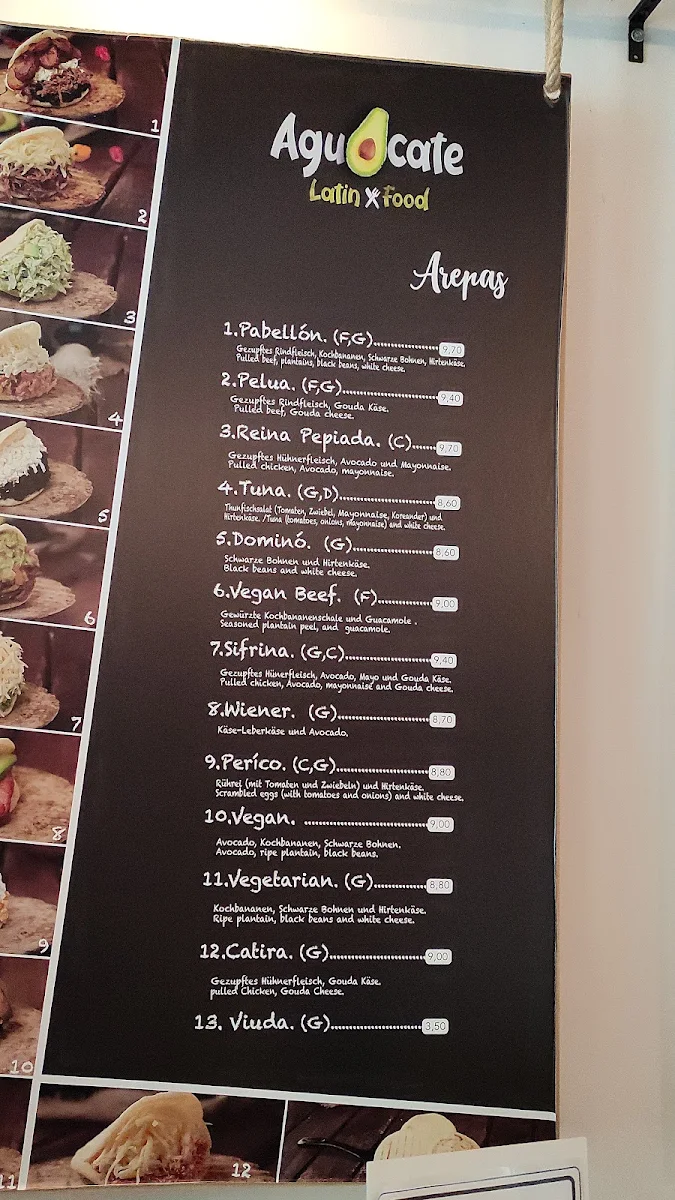 Aguacate
Latin Food
Arepas
1.Pabellón. (F,G)........................ 9,70
Gezupftes Rindfleisch, Kochbananen, Schwarze Bohnen, Hirtenkäse.
Pulled beef, plantains, black beans, white cheese.
2.Pelua. (F,G)........................ 9,40
Gezupftes Rindfleisch, Gouda Käse.
Pulled beef, Gouda cheese.
3.Reina Pepiada. (C)...... 9,70
Gezupftes Hühnerfleisch, Avocado und Mayonnaise.
Pulled chicken, Avocado, mayonnaise.
4.Tuna. (G,D)........................ 8,60
Thunfischsalat (Tomaten, Zwiebel, Mayonnaise, Koreander) und
Hirtenkäse. /Tuna (tomatoes, onions, mayonnaise) and white cheese.
5.Dominó. (G)........................ 8,60
Schwarze Bohnen und Hirtenkäse.
Black beans and white cheese.
6.Vegan Beef. (F)................ 9,00
Gewürzte Kochbananenschale und Guacamole .
Seasoned plantain peel, and guacamole.
7.Sifrina. (G,C)...................... 9,40
Gezupftes Hünerfleisch, Avocado, Mayo und Gouda Käse.
Pulled chicken, Avocado, mayonnaise and Gouda cheese.
8.Wiener. (G)........................ 8,70
Käse-Leberkäse und Avocado.
9.Períco. (C,G)........................ 8,80
Rührei (mit Tomaten und Zwiebeln) und Hirtenkäse.
Scrambled eggs (with tomatoes and onions) and white cheese.
10.Vegan. ................................ 9,00
Avocado, Kochbananen, Schwarze Bohnen.
Avocado, ripe plantain, black beans.
11.Vegetarian. (G)................ 8,80
Kochbananen, Schwarze Bohnen und Hirtenkäse.
Ripe plantain, black beans and white cheese.
12.Catira. (G)........................ 9,00
Gezupftes Hühnerfleisch, Gouda Käse.
pulled Chicken, Gouda Cheese.
13. Viuda. (G)........................ 3,50
1
2
3
4
5
6
7
8
9
10
11
12